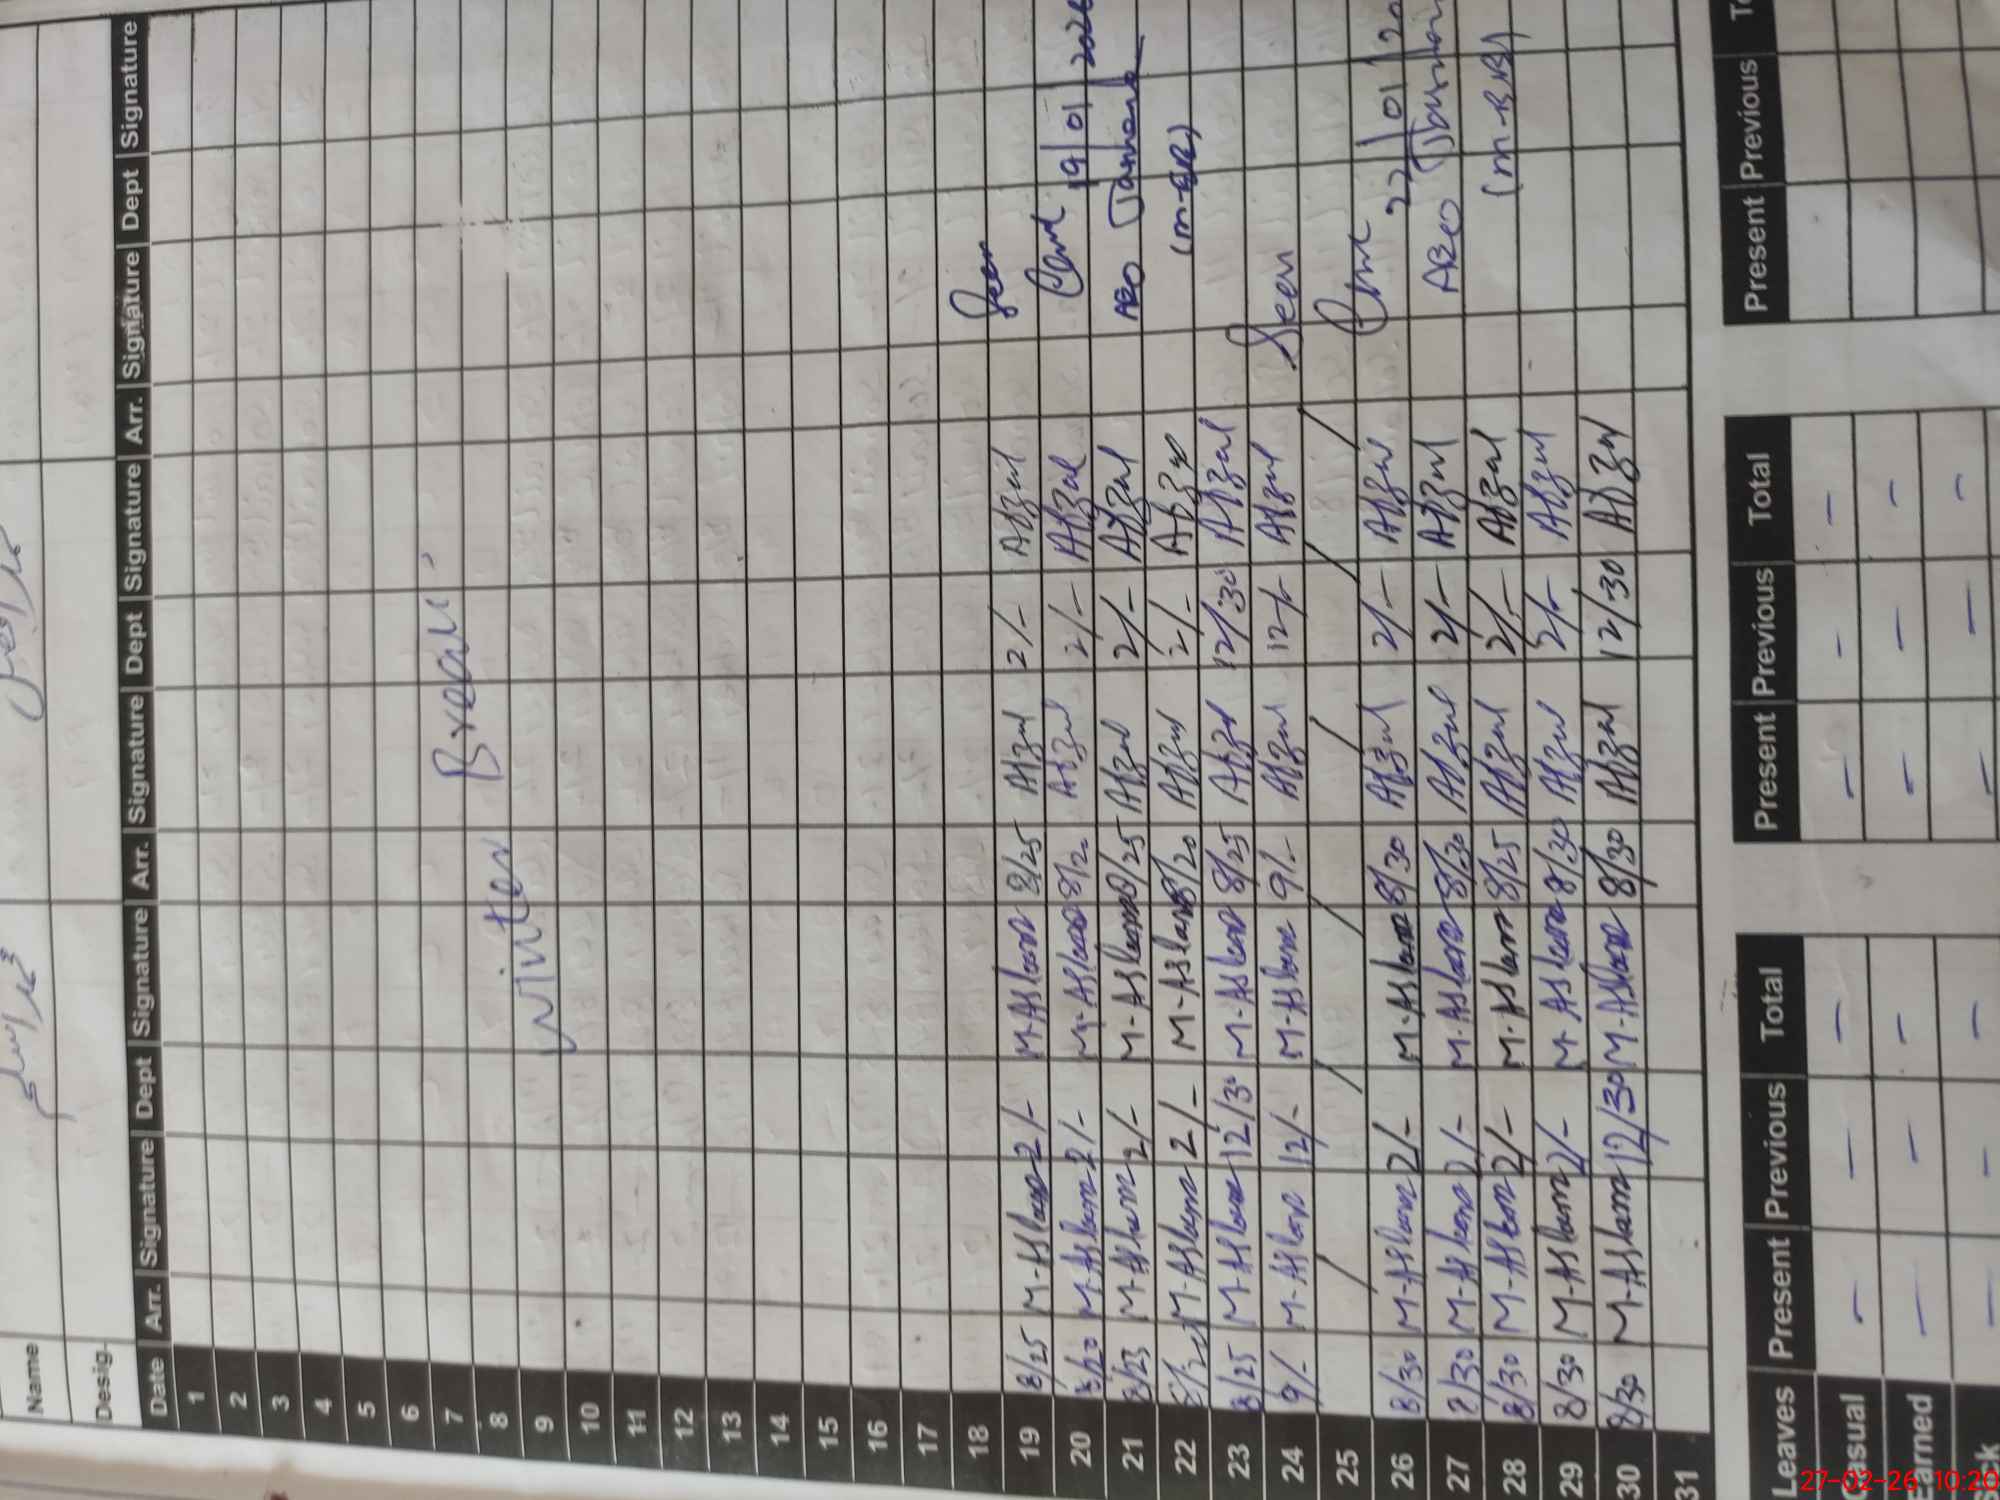 Name
Desig.
Date Arr. Signature Dept Signature Arr. Signature Dept Signature Arr. Signature Dept Signature
1
2
3
4
5
6
7
8
9
10
11
12
13
14
15
16
17
18
Winter Break
19 8/25 M-Aslam 2/- M-Aslam 8/25 Afzal 2/- Afzal
20 8/20 M-Aslam 2/- M-Aslam 8/20 Afzal 2/- Afzal
21 8/25 M-Aslam 2/- M-Aslam 8/25 Afzal 2/- Afzal
22 M-Aslam 2/- M-Aslam 8/20 Afzal 2/- Afzal
23 8/25 M-Aslam 12/30 M-Aslam 8/25 Afzal 12/30 Afzal
24 9/- M-Aslam 12/- M-Aslam 9/- Afzal 12/- Afzal
25
26 8/30 M-Aslam 2/- M-Aslam 8/30 Afzal 2/- Afzal
27 8/30 M-Aslam 2/- M-Aslam 8/30 Afzal 2/- Afzal
28 8/30 M-Aslam 2/- M-Aslam 8/25 Afzal 2/- Afzal
29 8/30 M-Aslam 2/- M-Aslam 8/30 Afzal 2/- Afzal
30 8/30 M-Aslam 12/30 M-Aslam 8/30 Afzal 12/30 Afzal
31
Seen
19/01/2026
AEO
Seen
22/01/20
AEO
Leaves Present Previous Total Present Previous Total Present Previous
Casual - - - - - -
Earned - - - - - -
Sick - - - - - -
27-02-26 10:20